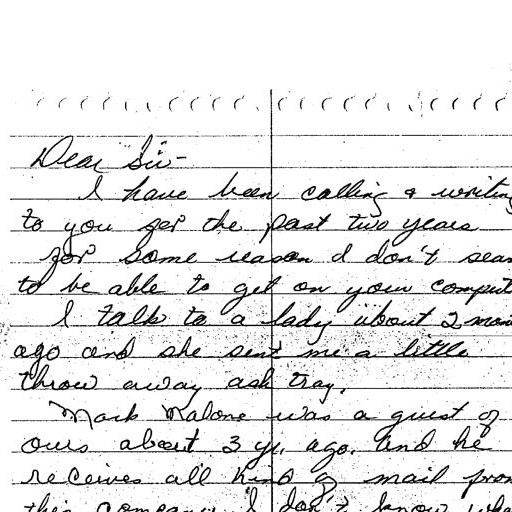 Dear Sir-
I have been calling & writing
to you for the past two years
for some reason I don't seam
to be able to get on your comput
I talk to a lady about 2 mon
ago and she sent me a little
throw away ash tray.
Mark Malone was a guest of
ours about 3 yr. ago. and he
receives all kind of mail from
this company I don't know